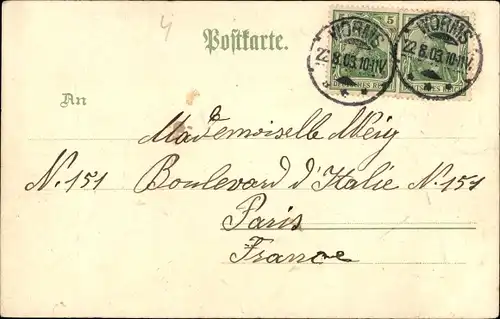 4
Postkarte.
WORMS
22.8.03.10-11V.
WORMS
22.8.03.10-11V.
5
DEUTSCHES REICH
An
Mademoiselle Méry
N. 151 Boulevard d'Italie N. 151
Paris
France